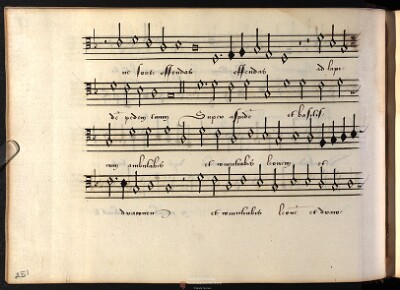 ne forte offendas offendas ad lapi
dē pedem tuum Super aspidē et basilis
cum ambulabis et conculcabis leonem et
draconem et conculcabis leonē et draco
251